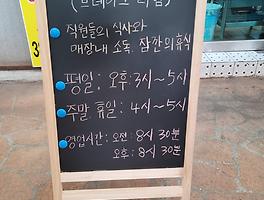 (브레이크 타임)
직원들의 식사와
매장내 소독, 잠깐의 휴식
평일: 오후: 3시~5시
주말, 휴일: 4시~5시
영업시간: 오전: 8시 30분
오후: 8시 30분